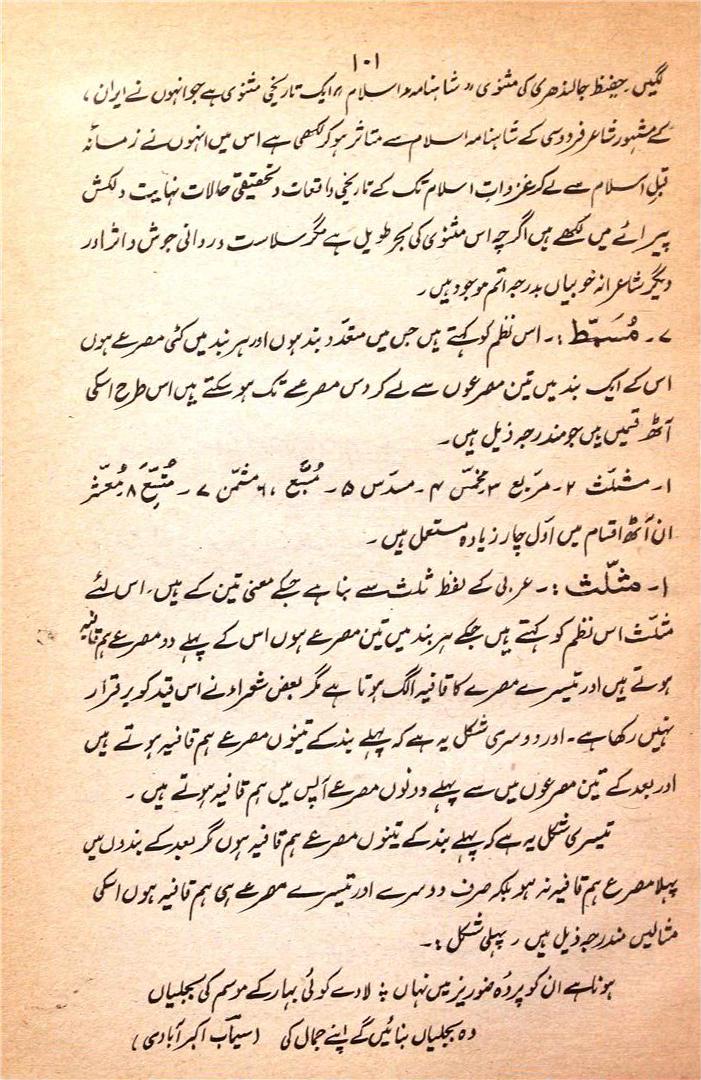 ۱۰۱
لگیں۔ حفیظ جالندھری کی مثنوی "شاہنامہ اسلام" ایک تاریخی مثنوی ہے جو انہوں نے ایران،
کے مشہور شاعر فردوسی کے شاہنامہ اسلام سے متاثر ہو کر لکھی ہے اس میں انہوں نے زمانہ
قبل اسلام سے لے کر غزوات اسلام تک کے تاریخی واقعات و تحقیقی حالات نہایت دلکش
پیرائے میں لکھے ہیں اگرچہ اس مثنوی کی بحر طویل ہے مگر سلاست و روانی جوش و اثر اور
دیگر شاعرانہ خوبیاں بدرجہ اتم موجود ہیں۔
۷۔ مُسَمّط :۔ اس نظم کو کہتے ہیں جس میں متعدّد بند ہوں اور ہر بند میں کئی مصرعے ہوں
اس کے ایک بند میں تین مصرعوں سے لے کر دس مصرعے تک ہو سکتے ہیں اس طرح اسکی
آٹھ قسمیں ہیں جو مندرجہ ذیل ہیں۔
۱۔ مثلّث ۲۔ مربّع ۳ مخمّس ۴۔ مسدّس ۵۔ مُسبَّع ،۶ مثمّن ۷۔ مُتسّع ۸ مُعشّر
ان آٹھ اقسام میں اوّل چار زیادہ مستعمل ہیں۔
۱۔ مثلّث :۔ عربی کے لفظ ثلث سے بنا ہے جسکے معنی تین کے ہیں۔ اس لئے
مثلّث اس نظم کو کہتے ہیں جسکے ہر بند میں تین مصرعے ہوں اس کے پہلے دو مصرعے ہم قافیہ
ہوتے ہیں اور تیسرے مصرے کا قافیہ الگ ہوتا ہے مگر بعض شعراء نے اس قید کو برقرار
نہیں رکھا ہے۔ اور دوسری شکل یہ ہے کہ پہلے بند کے تینوں مصرعے ہم قافیہ ہوتے ہیں
اور بعد کے تین مصرعوں میں سے پہلے دونوں مصرعے آپس میں ہم قافیہ ہوتے ہیں۔
تیسری شکل یہ ہے کہ پہلے بند کے تینوں مصرعے ہم قافیہ ہوں مگر بعد کے بندوں میں
پہلا مصرع ہم قافیہ نہ ہو بلکہ صرف دوسرے اور تیسرے مصرعے ہی ہم قافیہ ہوں اسکی
مثالیں مندرجہ ذیل ہیں۔ پہلی شکل :۔
ہونا ہے ان کو پردہ ضوریز میں نہاں ؛ لادے کوئی بہار کے موسم کی بجلیاں
وہ بجلیاں بنائیں گے اپنے جمال کی (سیماب اکبر آبادی)